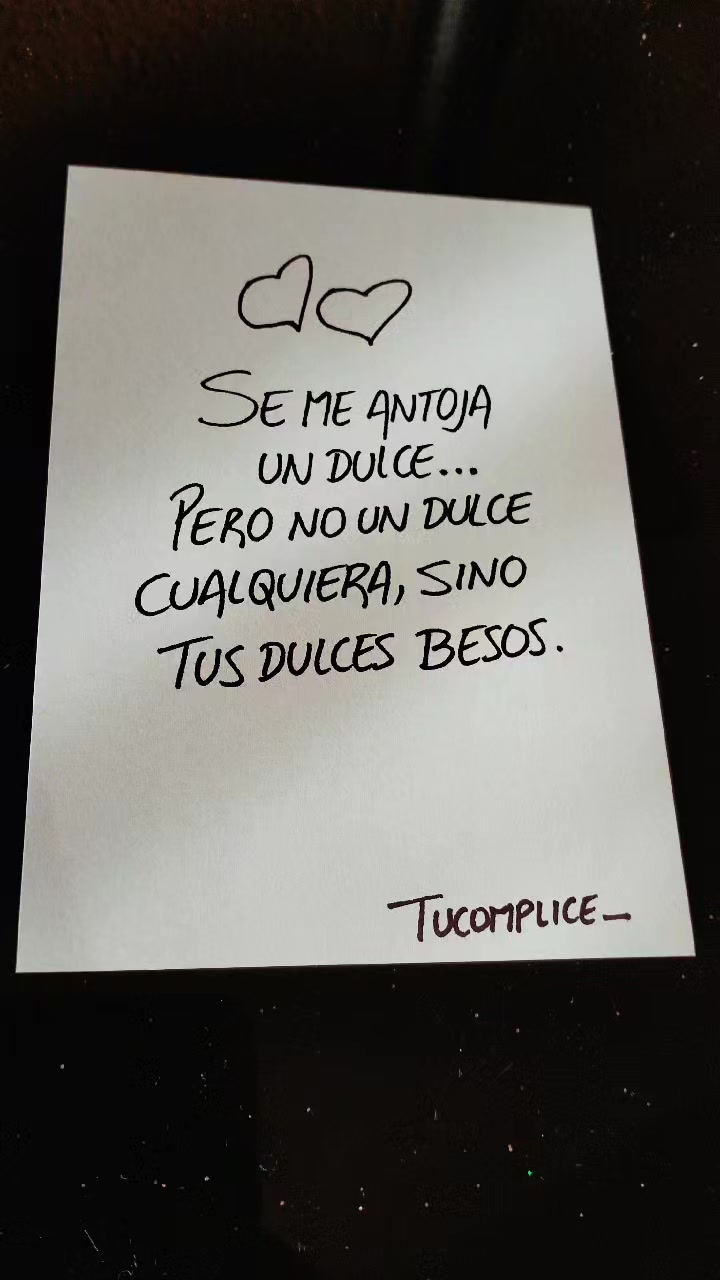 SE ME ANTOJA
UN DULCE...
PERO NO UN DULCE
CUALQUIERA, SINO
TUS DULCES BESOS.
TUCOMPLICE_